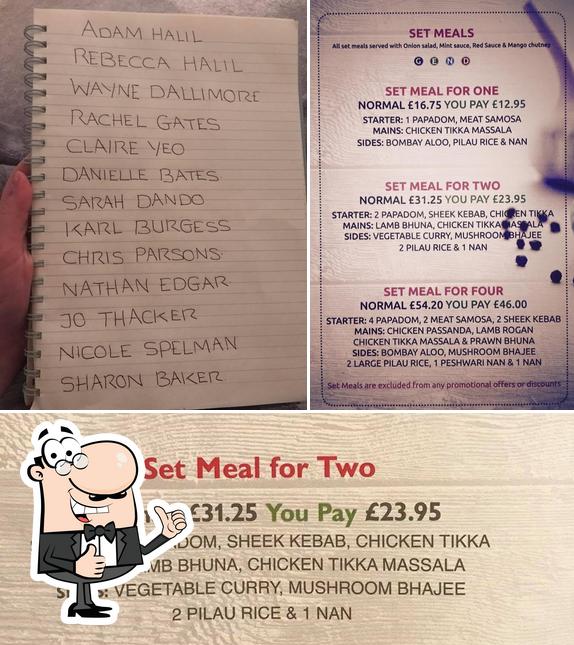 ADAM HALIL
REBECCA HALIL
WAYNE DALLIMORE
RACHEL GATES
CLAIRE YEO
DANIELLE BATES
SARAH DANDO
KARL BURGESS
CHRIS PARSONS
NATHAN EDGAR
JO THACKER
NICOLE SPELMAN
SHARON BAKER
SET MEALS
All set meals served with Onion salad, Mint sauce, Red Sauce & Mango chutney
G E N D
SET MEAL FOR ONE
NORMAL £16.75 YOU PAY £12.95
STARTER: 1 PAPADOM, MEAT SAMOSA
MAINS: CHICKEN TIKKA MASSALA
SIDES: BOMBAY ALOO, PILAU RICE & NAN
SET MEAL FOR TWO
NORMAL £31.25 YOU PAY £23.95
STARTER: 2 PAPADOM, SHEEK KEBAB, CHICKEN TIKKA
MAINS: LAMB BHUNA, CHICKEN TIKKA MASSALA
SIDES: VEGETABLE CURRY, MUSHROOM BHAJEE
2 PILAU RICE & 1 NAN
SET MEAL FOR FOUR
NORMAL £54.20 YOU PAY £46.00
STARTER: 4 PAPADOM, 2 MEAT SAMOSA, 2 SHEEK KEBAB
MAINS: CHICKEN PASSANDA, LAMB ROGAN
CHICKEN TIKKA MASSALA & PRAWN BHUNA
SIDES: BOMBAY ALOO, MUSHROOM BHAJEE
2 LARGE PILAU RICE, 1 PESHWARI NAN & 1 NAN
Set Meals are excluded from any promotional offers or discounts
Set Meal for Two
£31.25 You Pay £23.95
DOM, SHEEK KEBAB, CHICKEN TIKKA
MB BHUNA, CHICKEN TIKKA MASSALA
VEGETABLE CURRY, MUSHROOM BHAJEE
2 PILAU RICE & 1 NAN